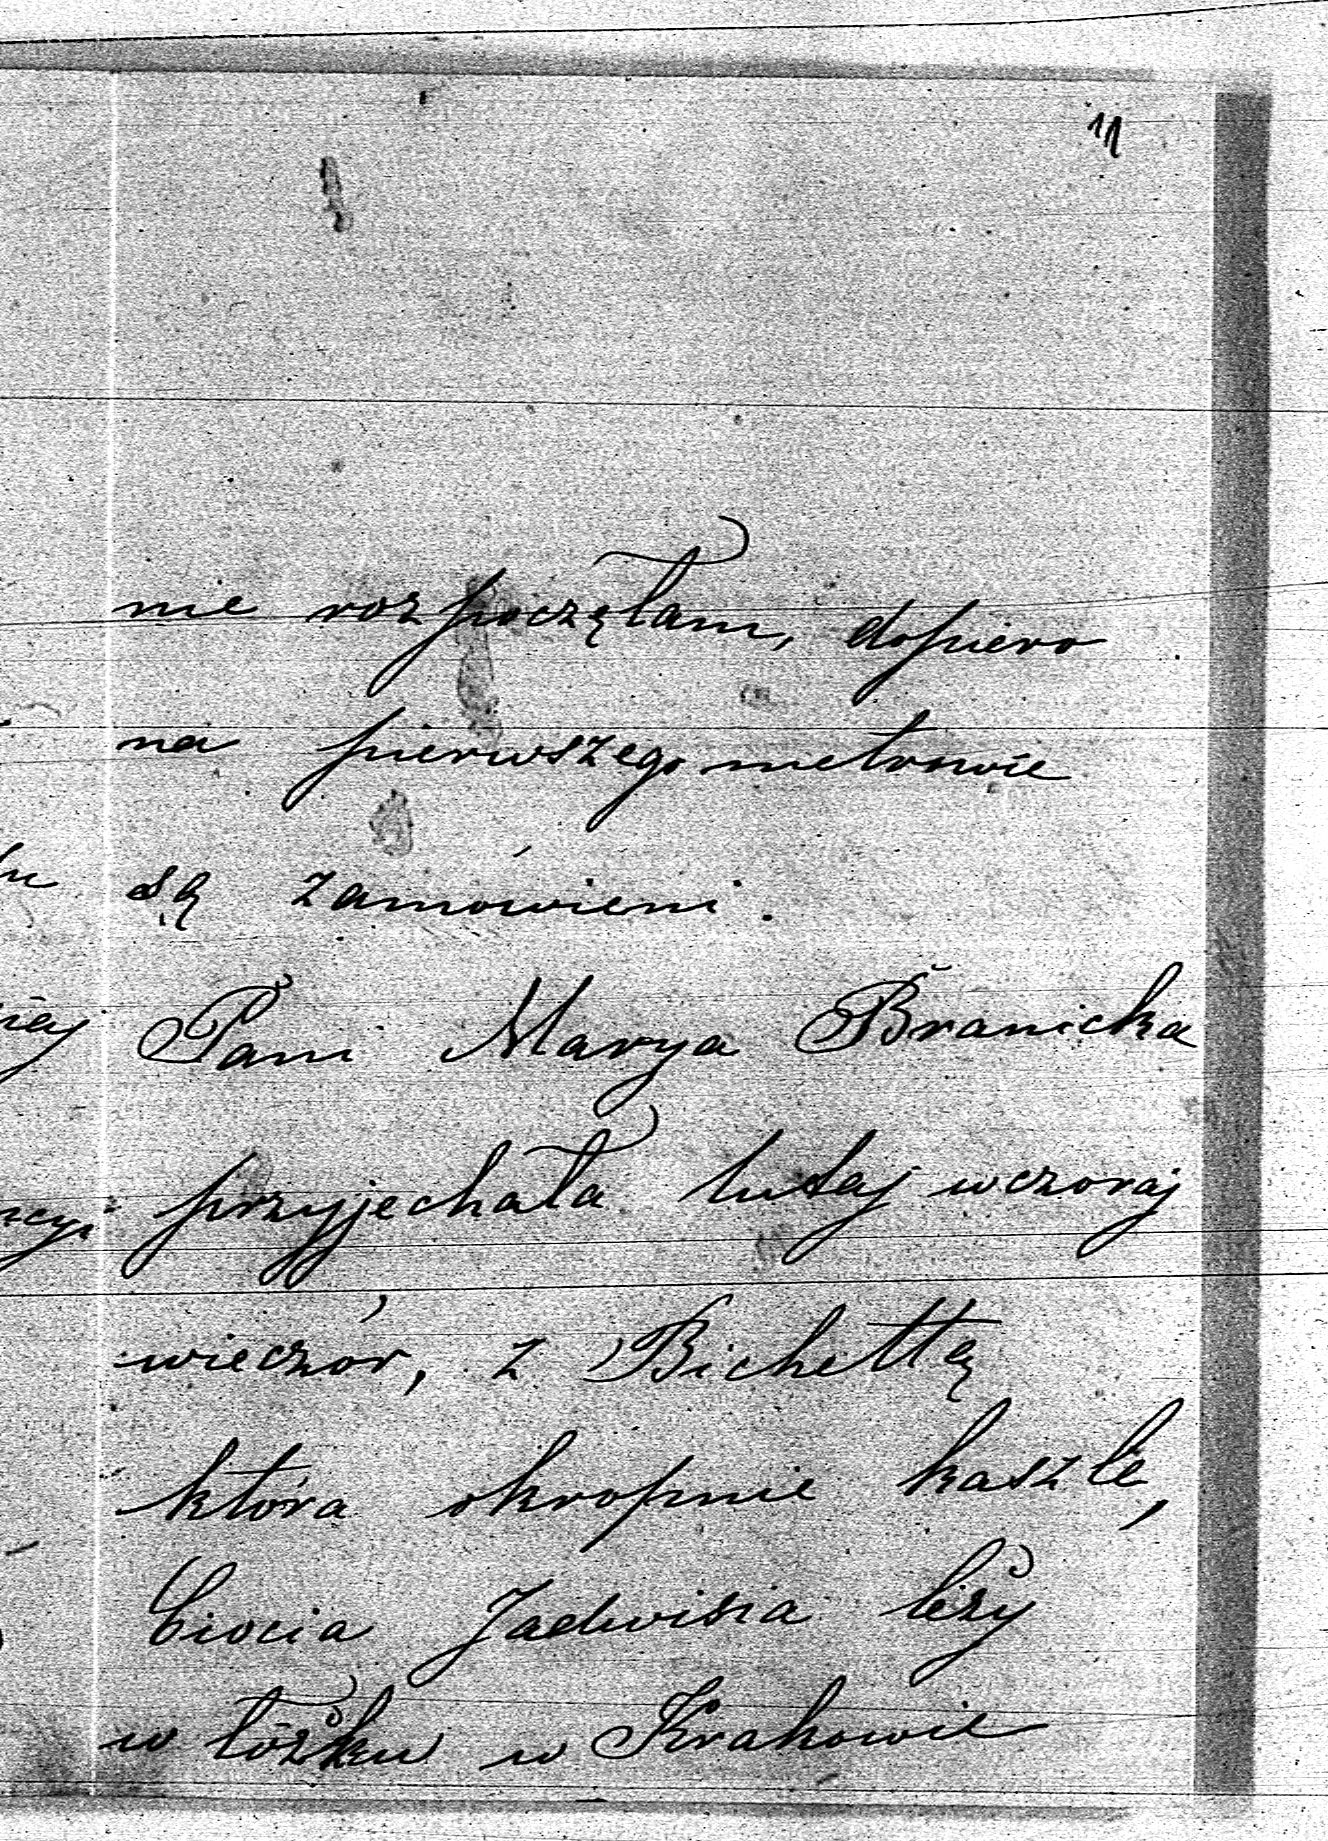 11
nie rozpoczęłam, dopiero
na pierwszego metrowie
są zamówieni.
Pani Marya Branicka
przyjechała tutaj wczoraj
wieczór, z Bichettą
która okropnie kaszle,
Ciocia Jadwisia leży
w łóżku w Krakowie